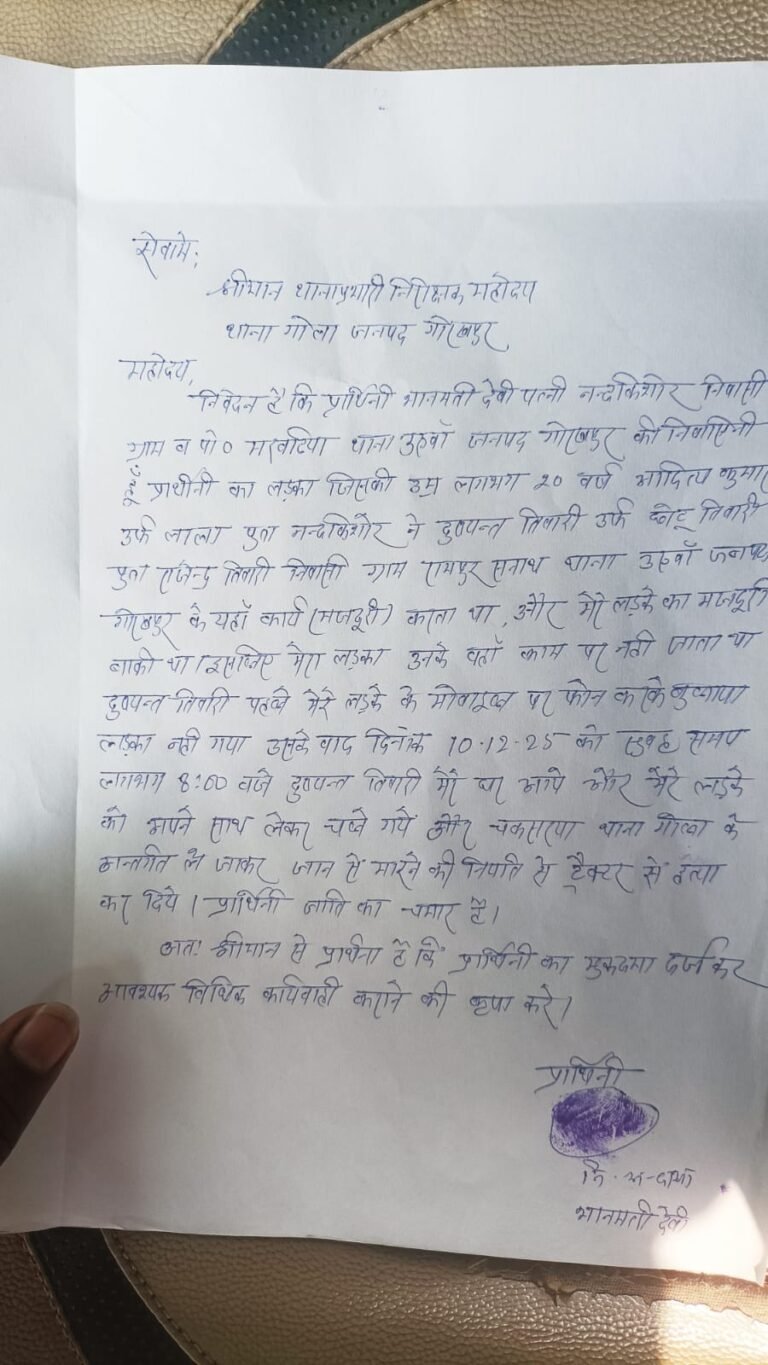 सेवामे,
श्रीमान थानाप्रभारी निरीक्षक महोदय
थाना गोला जनपद गोरखपुर
महोदय,
निवेदन है कि प्रार्थिनी भानमती देवी पत्नी नन्दकिशोर निवासी
ग्राम व पो० थाना उरुवाँ जनपद गोरखपुर की निवासिनी
हूँ प्रार्थीनी का लड़का जिसकी उम्र लगभग 20 वर्ष आदित्य कुमार
उर्फ लाला पुत्र नन्दकिशोर ने दुष्यन्त तिवारी उर्फ तिवारी
पुत्र राजेन्द्र तिवारी निवासी ग्राम रामपुर थाना उरुवाँ जनपद
गोरखपुर के यहाँ कार्य (मजदूरी) करता था, और मेरे लड़के का मजदूरी
बाकी था। इसलिए मेरा लड़का उनके वहाँ काम पर नही जाता था
दुष्यन्त तिवारी पहले मेरे लड़के के मोबाइल पर फोन करके बुलाया
लड़का नही गया उसके बाद दिनांक 10.12.25 को सुबह समय
लगभग 8:00 बजे दुष्यन्त तिवारी मेरे घर आये और मेरे लड़के
को अपने साथ लेकर चले गये और चकसरया थाना गोला के
अन्तर्गत ले जाकर जान से मारने की नियति से ट्रैक्टर से हत्या
कर दिये। प्रार्थिनी जाति का चमार है।
अतः श्रीमान से प्रार्थना है कि प्रार्थिनी का मुकदमा दर्ज कर
आवश्यक विधिक कार्यवाही कराने की कृपा करे।
प्रार्थिनी
नि.
भानमती देवी